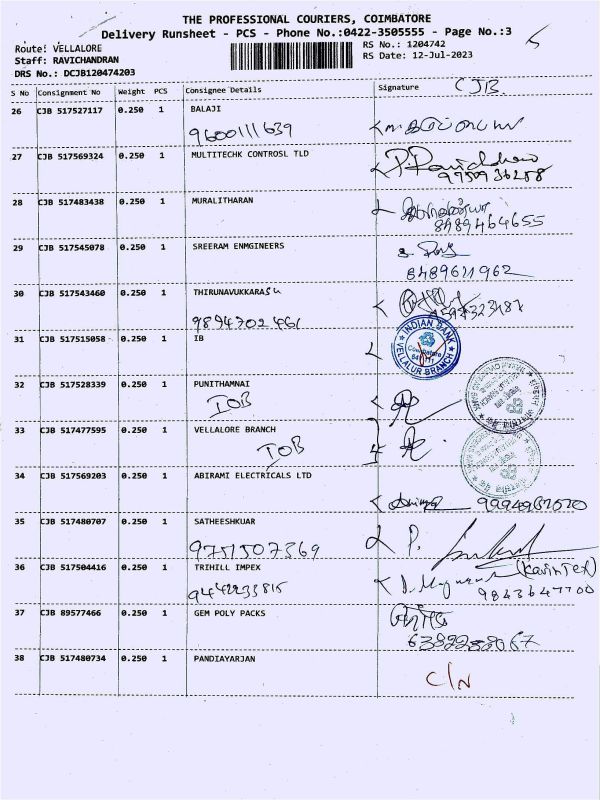 THE PROFESSIONAL COURIERS, COIMBATORE
Delivery Runsheet - PCS - Phone No.:0422-3505555 - Page No.:3
Route: VELLALORE
RS No.: 1204742
Staff: RAVICHANDRAN
RS Date: 12-Jul-2023
DRS No.: DCJB120474203
S No Consignment No Weight PCS Consignee Details Signature CJB
26 CJB 517527117 0.250 1 BALAJI
9600111639
27 CJB 517569324 0.250 1 MULTITECHK CONTROSL TLD
9750936258
28 CJB 517483438 0.250 1 MURALITHARAN
8489464655
29 CJB 517545078 0.250 1 SREERAM ENMGINEERS
8489611962
30 CJB 517543460 0.250 1 THIRUNAVUKKARASU
9894702461
31 CJB 517515058 0.250 1 IB
INDIAN BANK
VELLALUR BRANCH
32 CJB 517528339 0.250 1 PUNITHAMNAI
IOB
33 CJB 517477595 0.250 1 VELLALORE BRANCH
IOB
34 CJB 517569203 0.250 1 ABIRAMI ELECTRICALS LTD
35 CJB 517480707 0.250 1 SATHEESHKUAR
9751507369 P.
36 CJB 517504416 0.250 1 TRIHILL IMPEX
9442233815
9843647700
37 CJB 89577466 0.250 1 GEM POLY PACKS
38 CJB 517480734 0.250 1 PANDIAYARJAN
C/N